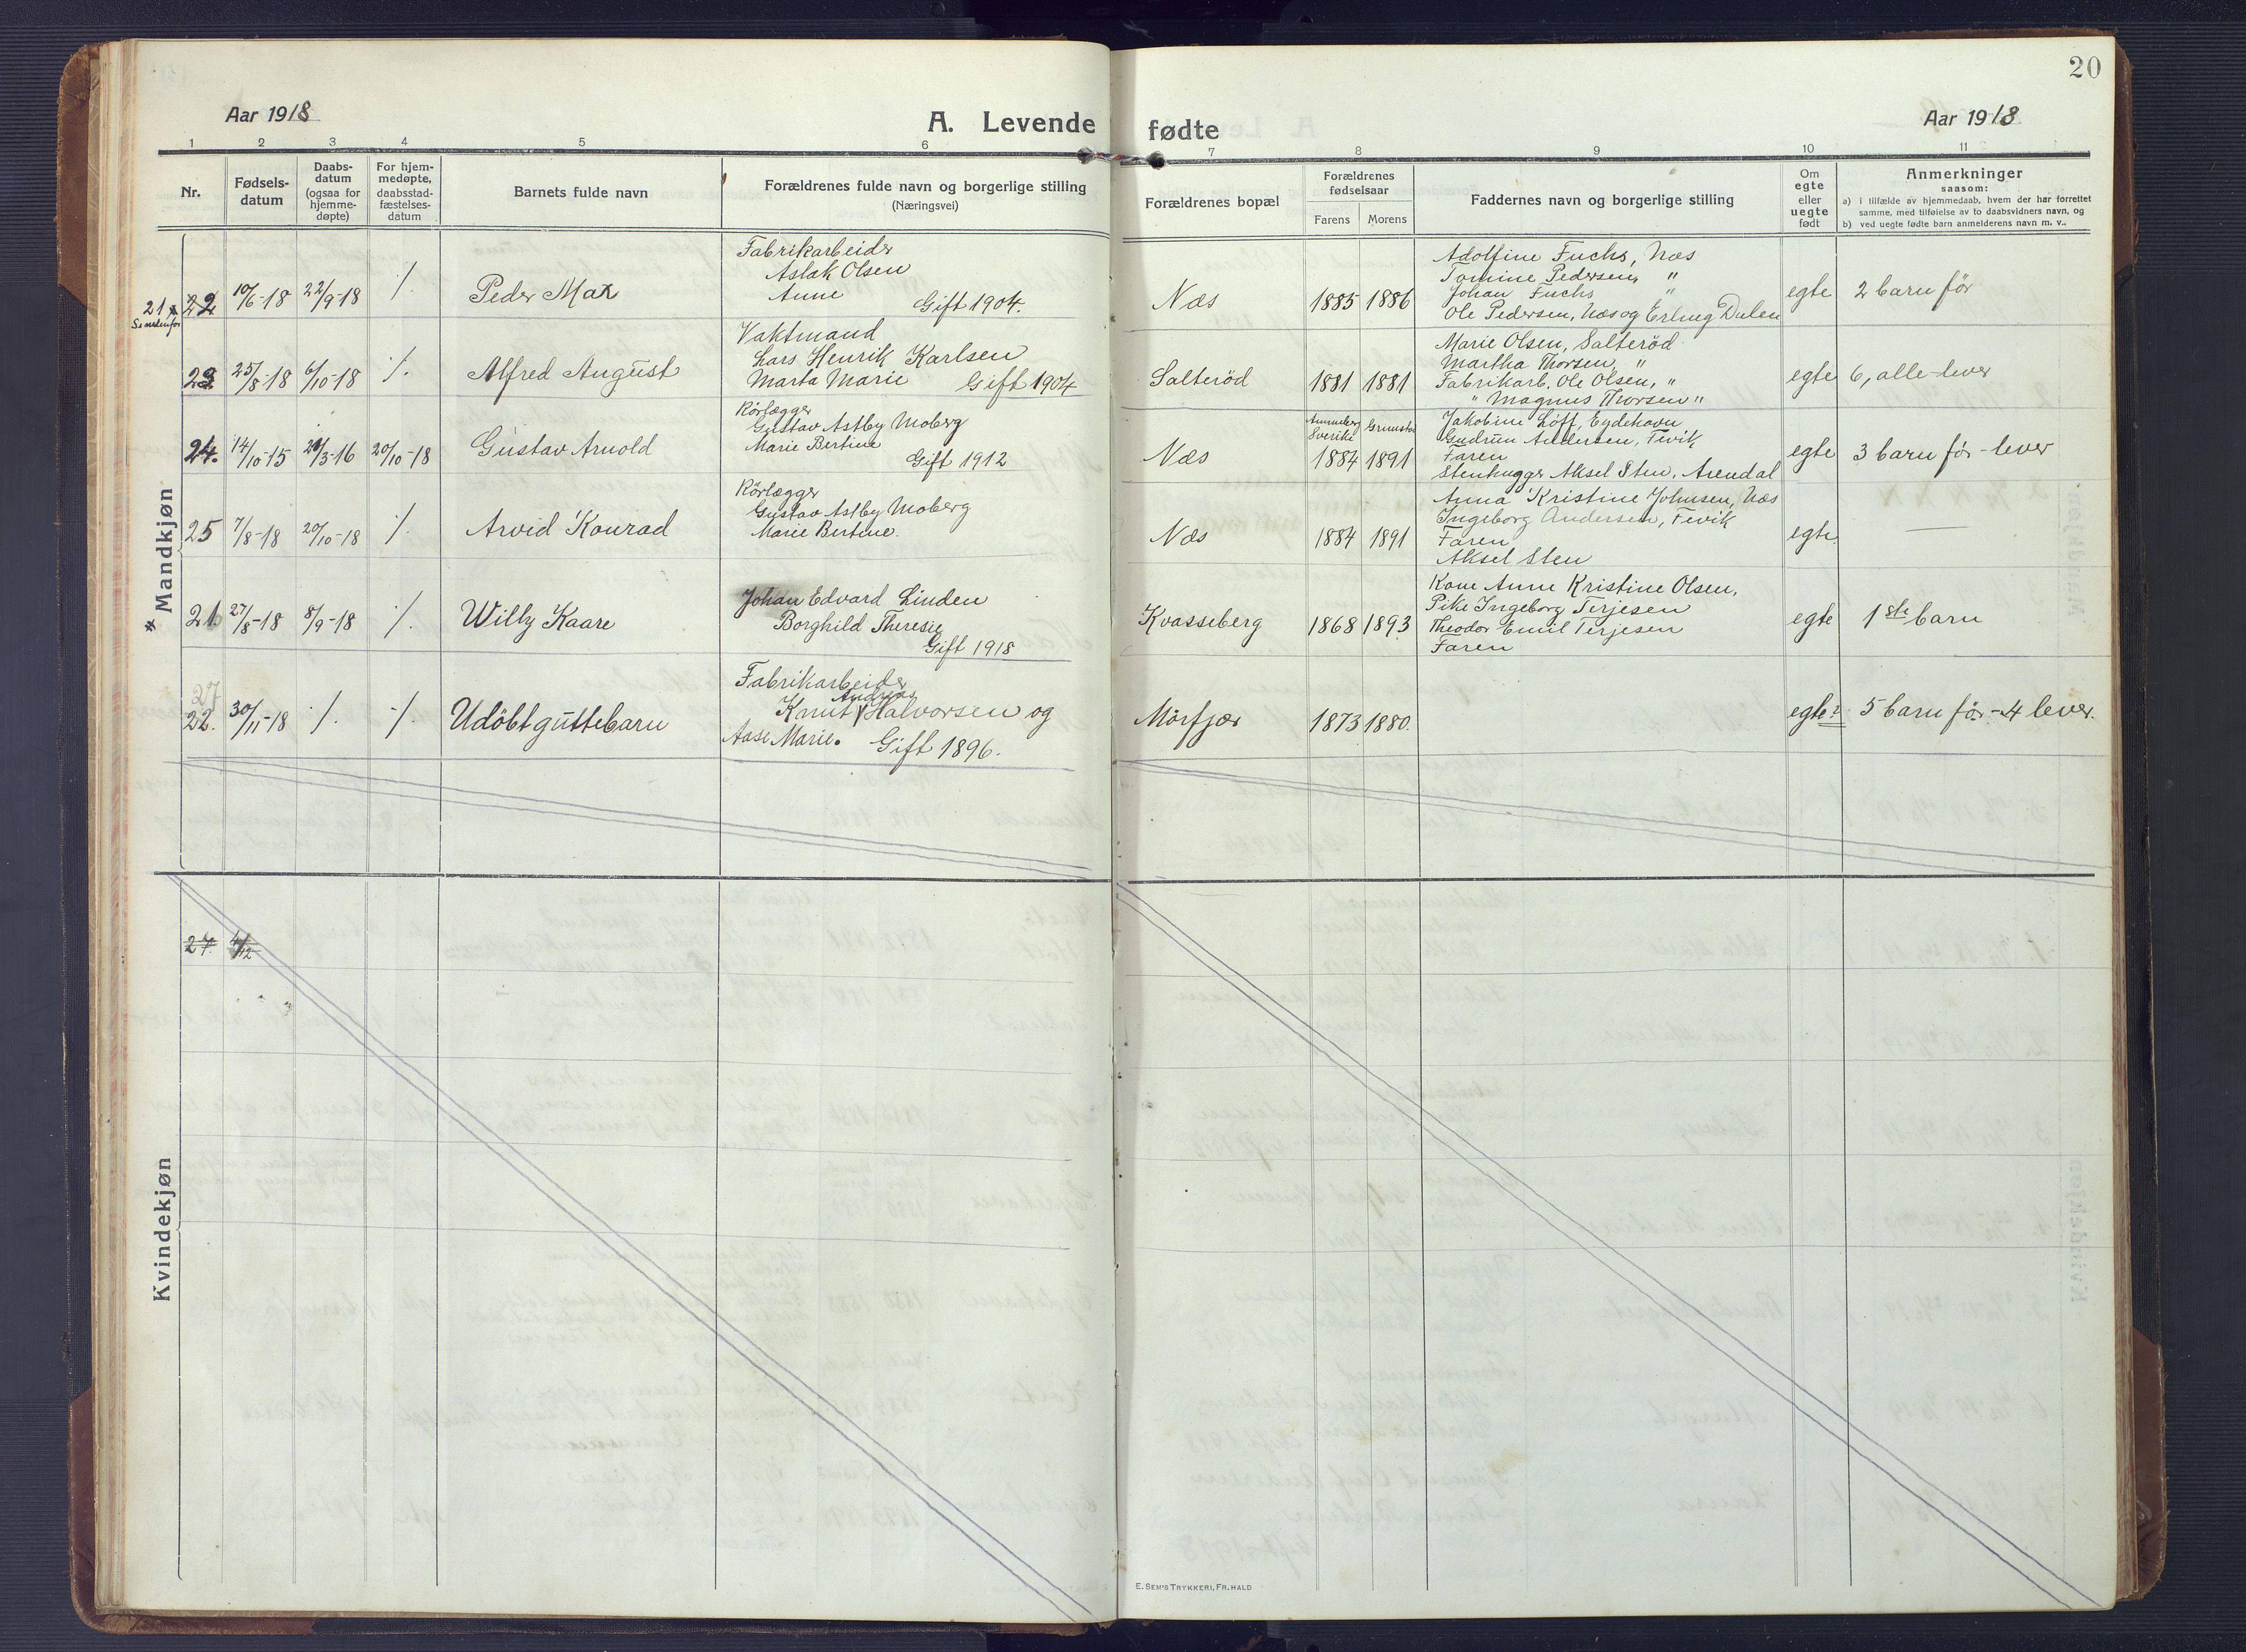 20
Aar 1918
A. Levende fødte
Aar 1918
1 2 3 4 5 6 7 8 9 10 11
Nr.
Fødsels-
datum
Daabs-
datum
(ogsaa for
hjemme-
døpte)
For hjem-
medøpte,
daabsstad-
fæstelses-
datum
Barnets fulde navn
Forældrenes fulde navn og borgerlige stilling
(Næringsvei)
Forældrenes bopæl
Forældrenes
fødselsaar
Farens Morens
Faddernes navn og borgerlige stilling
Om
egte
eller
uegte
født
Anmerkninger
saasom:
a) i tilfælde av hjemmedaab, hvem der har forrettet
samme, med tilføielse av to daabsvidners navn, og
b) ved uegte fødte barn anmelderens navn m. v..
Mandkjøn
21 *
Se nedenfor
22 10/6-18 22/9-18 ./. Peder Max
Fabrikarbeider
Aslak Olsen
Anne Gift 1904.
Næs 1885 1886
Adolfine Fuchs, Næs
Tomine Pedersen, "
Johan Fuchs "
Ole Pedersen, Næs og Erling Dalen
egte 2 barn før
23 25/8-18 6/10-18 ./. Alfred August
Vaktmand
Lars Henrik Karlsen
Marta Marie Gift 1904
Salterød 1881 1881
Marie Olsen, Salterød
Martha Thorsen, "
Fabrikarb. Ole Olsen, "
" Magnus Thorsen "
egte 6, alle lever
24. 14/10-15 /3-16 20/10-18 Gustav Arnold
Rörlægger
Gustav Astby Moberg
Marie Bertine
Gift 1912
Næs
Ammeberg Sverike 1884
Grimstad 1891
Jakobine Löff, Eydehavn
Gudrun Andersen, Fevik
Faren
Stenhugger Aksel Sten, Arendal
egte 3 barn før - lever
25 7/8-18 20/10-18 ./. Arvid Konrad
Rörlægger
Gustav Astby Moberg
Marie Bertine.
Næs 1884 1891
Anna Kristine Johnsen, Næs
Ingeborg Andersen, Fevik
Faren
Aksel Sten
egte. —
* 21. 27/8-18 8/9-18 ./. Willy Kaare
Johan Edvard Linden
Borghild Theresie
Gift 1918
Kvasseberg 1868 1893
Kone Anne Kristine Olsen,
Pike Ingeborg Terjesen
Theodor Emil Terjesen
Faren
egte 1ste barn
27
22. 30/11-18 ./. ./. Udöbt guttebarn
Fabrikarbeider
Andreas
Knut V Halvorsen og
Aase Marie. Gift 1896.
Mörfjær 1873 1880.
egte? 5 barn før - 4 lever.
Kvindekjøn
27. 4/12
E. SEM'S TRYKKERI, FR. HALD